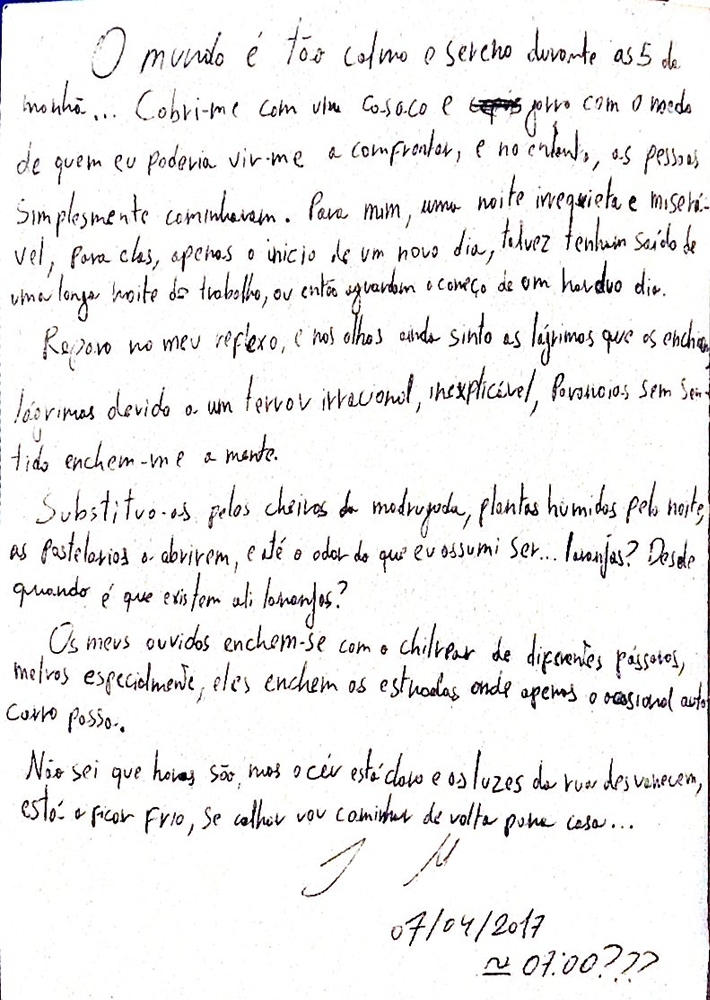 O mundo é tão calmo e sereno durante as 5 da
manhã... Cobri-me com um casaco e gorro com o medo
de quem eu poderia vir-me a confrontar, e no entanto, as pessoas
simplesmente caminhavam. Para mim, uma noite irrequieta e miserá-
vel, para elas, apenas o inicio de um novo dia, talvez tenham saído de
uma longa noite de trabalho, ou então aguardam o começo de um harduo dia.
Reparo no meu reflexo, e nos olhos ainda sinto as lágrimas que os enchem,
lágrimas devido a um terror irracional, inexplicável, Paranoias sem sen-
tido enchem-me a mente.
Substituo-as pelos cheiros da madrugada, plantas humidas pela noite,
as pastelarias a abrirem, e até o odor do que eu assumi ser... laranjas? Desde
quando é que existem ali laranjas?
Os meus ouvidos enchem-se com o chilrear de diferentes pássaros,
melros especialmente, eles enchem as estradas onde apenas o ocasional auto
carro passa...
Não sei que horas são, mas o céu está claro e as luzes da rua desvanecem,
está a ficar frio, se calhar vou caminhar de volta para casa...
J M
07/04/2017
≃ 07:00???